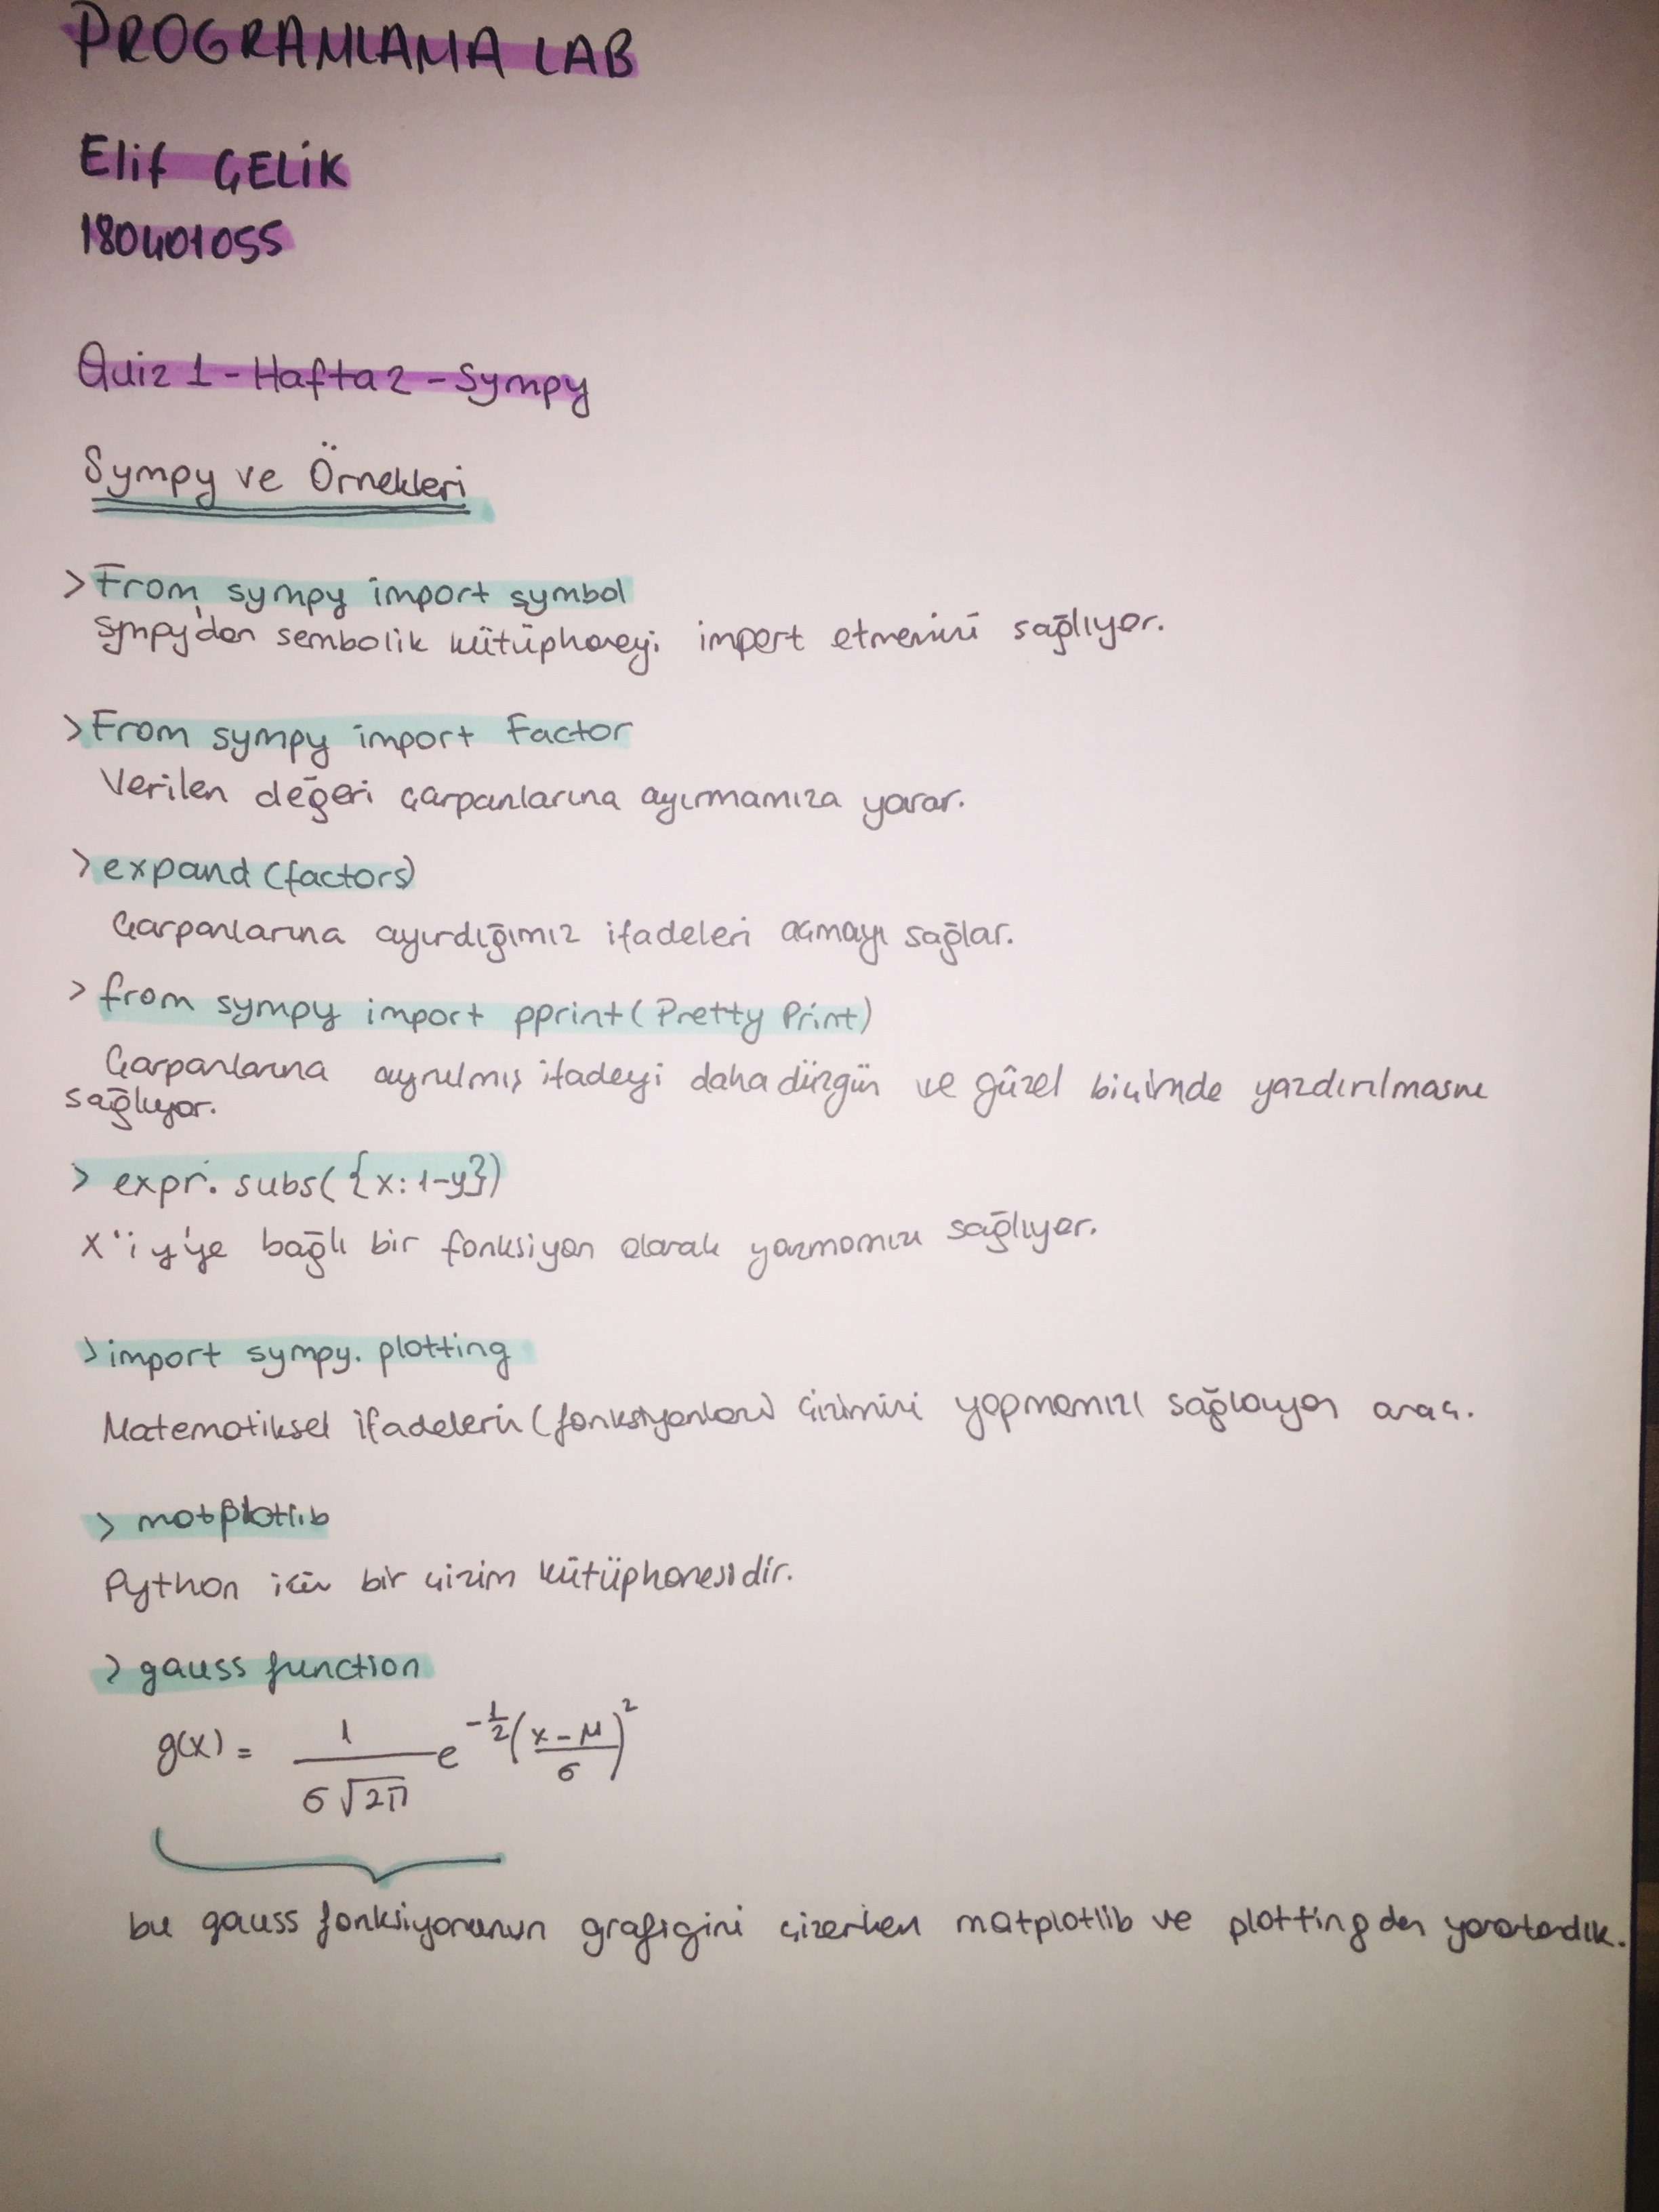 PROGRAMLAMA LAB
Elif ÇELİK
180401055
Quiz 1 - Hafta 2 - Sympy
Sympy ve Örnekleri
> From sympy import symbol
Sympy'dan sembolik kütüphaneyi import etmemizi sağlıyor.
> From sympy import Factor
Verilen değeri çarpanlarına ayırmamıza yarar.
> expand (factors)
Çarpanlarına ayırdığımız ifadeleri açmayı sağlar.
> from sympy import pprint (Pretty Print)
Çarpanlarına ayrılmış ifadeyi daha düzgün ve güzel biçimde yazdırılmasını
sağlıyor.
> expr. subs( {x: 1-y})
x''i y'ye bağlı bir fonksiyon olarak yazmamızı sağlıyor.
> import sympy. plotting
Matematiksel ifadelerin (fonksiyonların) çizimini yapmamızı sağlayan araç.
> matplotlib
Python için bir çizim kütüphanesidir.
> gauss function
g(x) = 1/(σ√2π) e^(-1/2((x-μ)/σ)^2)
bu gauss fonksiyonunun grafigini çizerken matplotlib ve plotting den yararlandık.